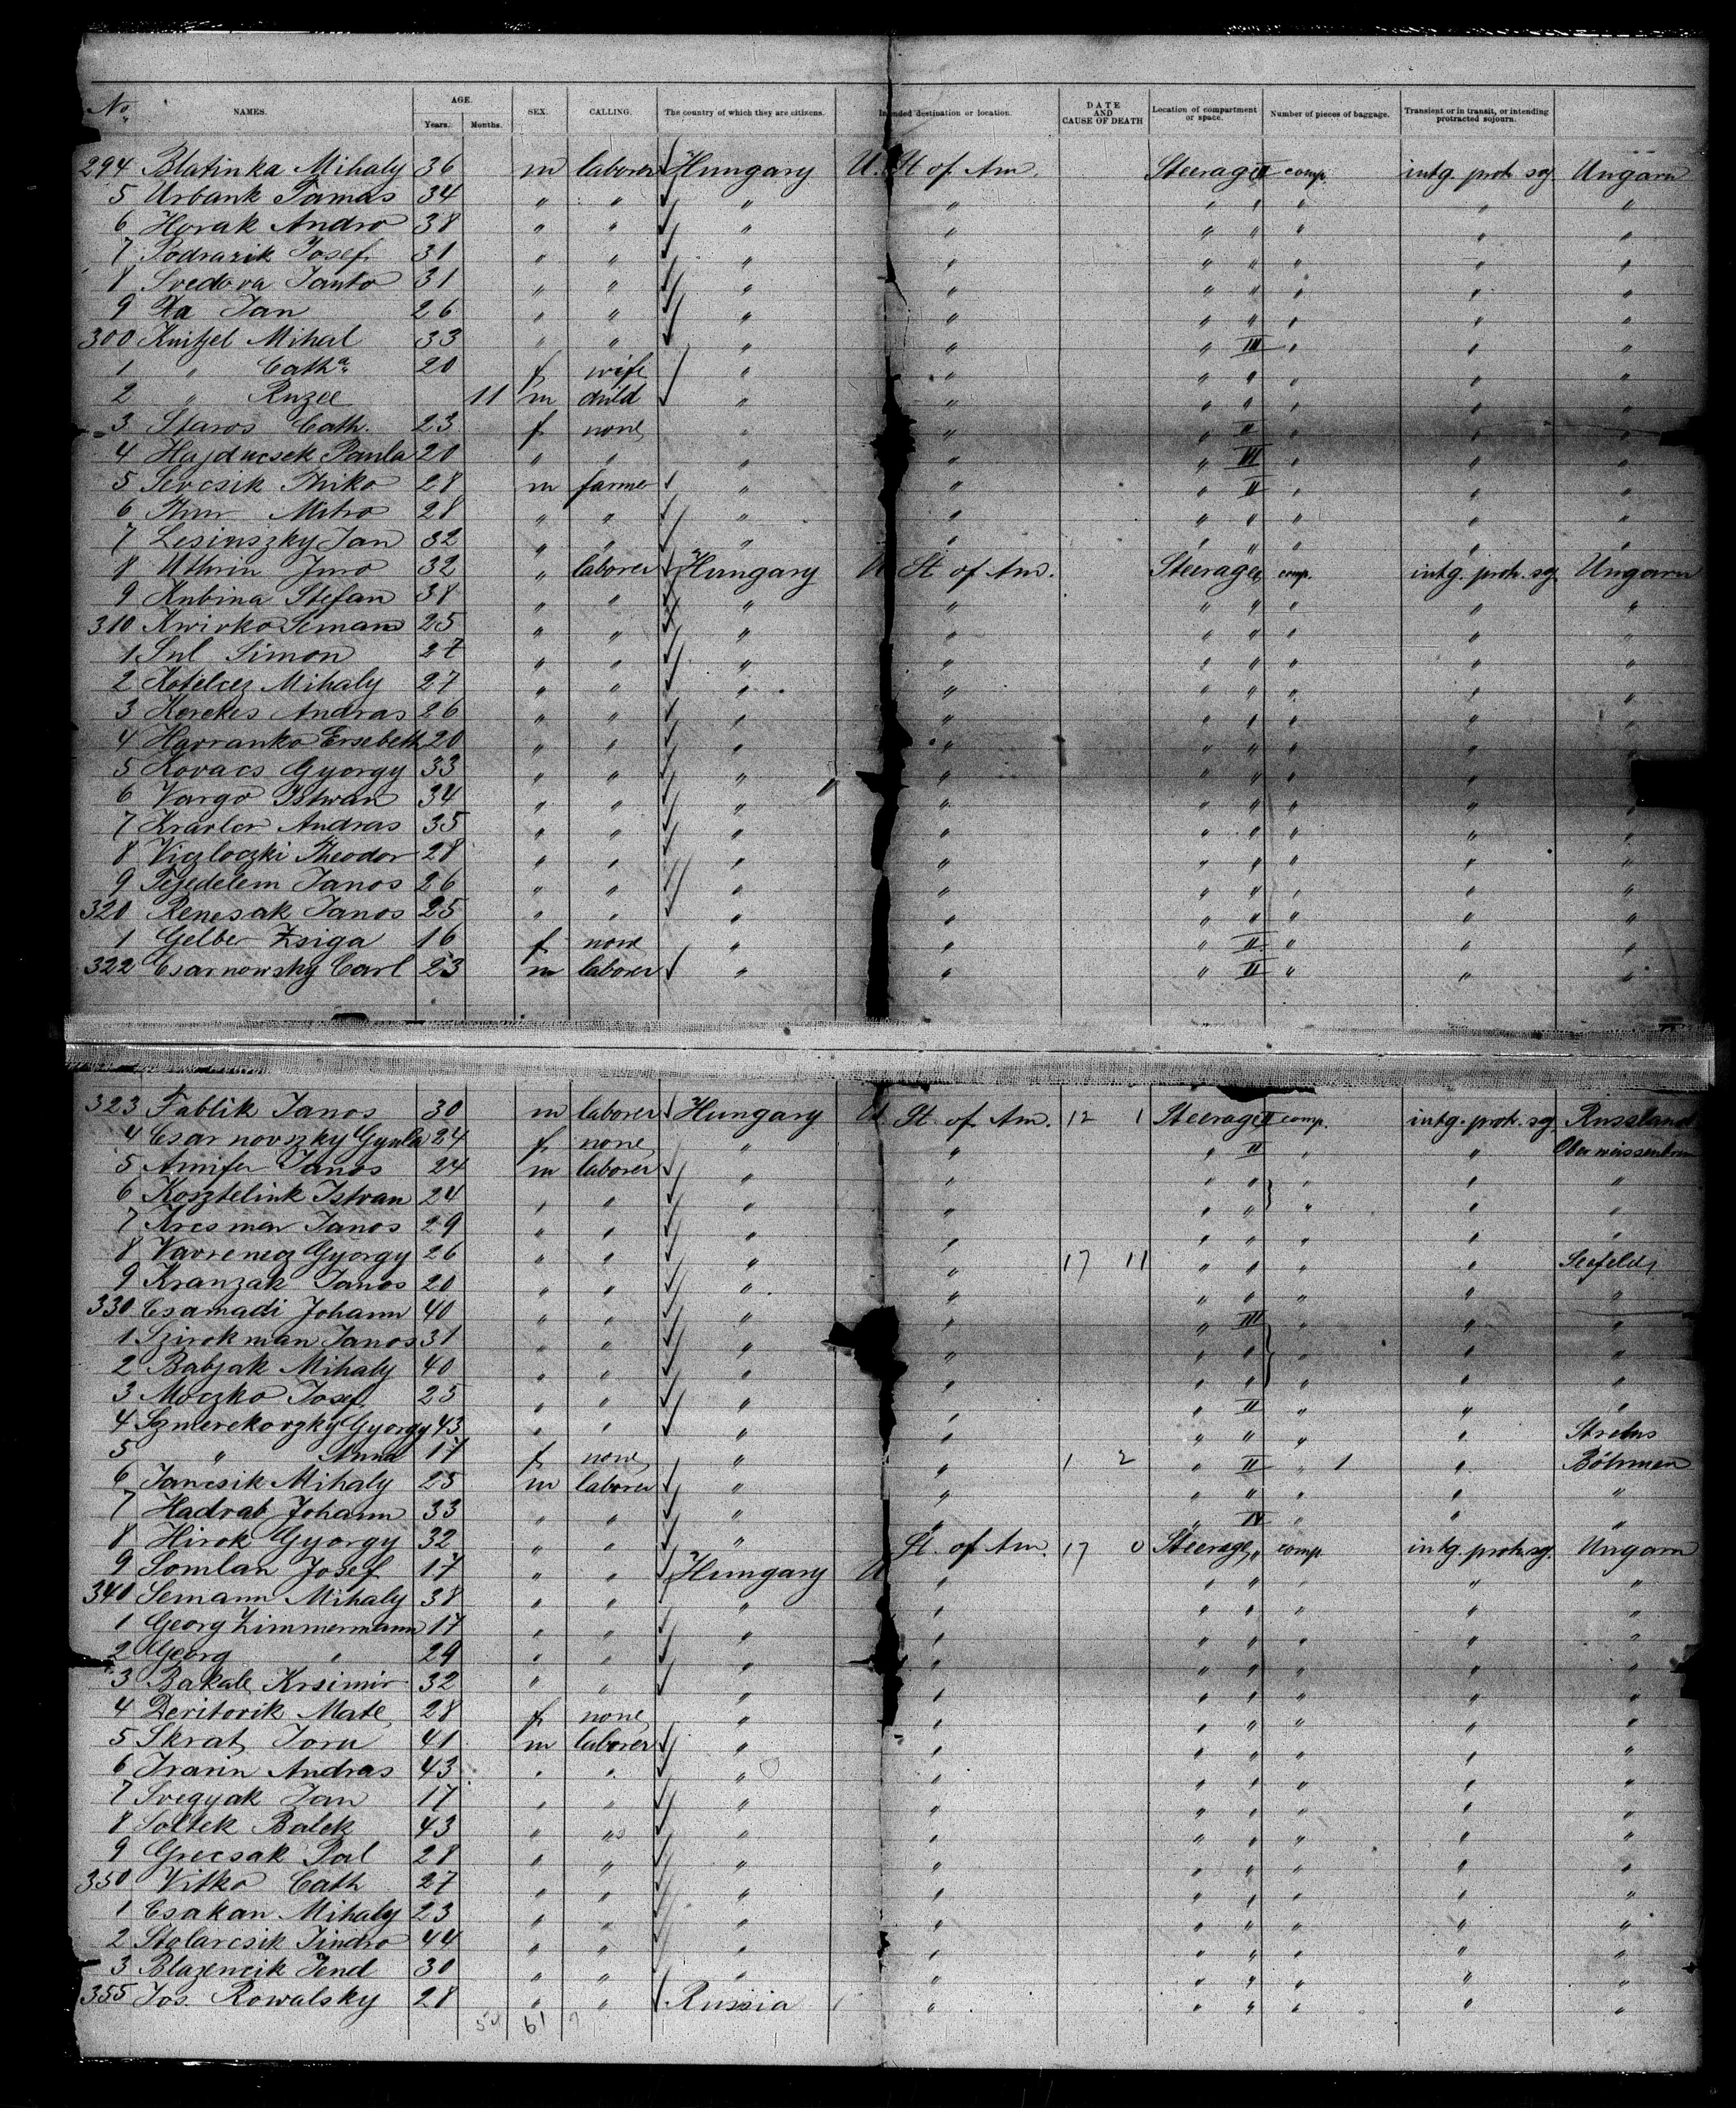 No. NAMES. AGE. Years. Months. SEX. CALLING. The country of which they are citizens. Intended destination or location. DATE AND CAUSE OF DEATH Location of compartment or space. Number of pieces of baggage. Transient or in transit, or intending protracted sojourn.
294 Blatinka Mihaly 36 m laborer Hungary U. St of Am. Steerage II comp. intg. protr. soj Ungarn
5 Urbank Tamas 34 " " " " " " " " "
6 Horak Andro 38 " " " " " " " " "
7 Podrazik Josef 31 " " " " " " " " "
8 Svedova Janko 31 " " " " " " " " "
9 Za Jan 26 " " " " " " " " "
300 Knitzel Mihal 33 " " " " " III " " "
1 " Catha 20 f wife " " " " " " "
2 " Ruzee 11 m child " " " " " " "
3 Staros Cath. 23 f none " " " II " " "
4 Hajducsek Paula 20 " " " " " VI " " "
5 Sevcsik Thiko 28 m farmer " " " II " " "
6 Thur Mitro 28 " " " " " " " " "
7 Lesinszky Jan 32 " " " " " " " " "
8 Uthrin Juro 32 " laborer Hungary U St of Am. Steerage " comp. intg. protr. soj. Ungarn
9 Kubina Stefan 38 " " " " " " " " "
310 Kwirko Seman 25 " " " " " " " " "
1 Sul Simon 27 " " " " " " " " "
2 Kotelcez Mihaly 27 " " " " " " " " "
3 Kerekes Andras 26 " " " " " " " " "
4 Harranko Ersebeth 20 " " " " " " " " "
5 Kovacs Gyorgy 33 " " " " " " " " "
6 Vargo Istwan 34 " " " " " " " " "
7 Kravlor Andras 35 " " " " " " " " "
8 Viczloczki Theodor 28 " " " " " " " " "
9 Fejedelem Janos 26 " " " " " " " " "
320 Renesak Janos 25 " " " " " " " " "
1 Gelber Zsiga 16 f none " " " II " " "
322 Csarnowsky Carl 23 m laborer " " " II " " "
323 Fablik Janos 30 m laborer Hungary U St. of Am. 12 1 Steerage II comp. intg. protr. soj. Russland
4 Csarnovszky Gyula 24 f none " " " II " " Oberweissenbrunn
5 Amifer Janos 24 m laborer " " " " " " "
6 Kosztelink Istvan 24 " " " " " " " " "
7 Kresman Janos 29 " " " " " " " " "
8 Vavrenecz Gyorgy 26 " " " " 17 11 " " " " Seefeld
9 Kranzak Janos 20 " " " " " " " " "
330 Csamadi Johann 40 " " " " " III " " "
1 Szirokman Janos 31 " " " " " " " " "
2 Babjak Mihaly 40 " " " " " " " " "
3 Moczko Josef 25 " " " " " II " " "
4 Szmerekovzky Gyorgy 43 " " " " " " " " Strebus
5 " Anna 17 f none " " 1 2 " II " 1 " Böhmen
6 Jancsik Mihaly 25 m laborer " " " " " " "
7 Hadrab Johann 33 " " " " " IV " " "
8 Hirok Gyorgy 32 " " " St. of Am. 17 0 Steerage " comp intg. protr. soj. Ungarn
9 Somlan Josef 17 " " Hungary U " " " " " "
340 Semann Mihaly 38 " " " " " " " " "
1 Georg Zimmermann 17 " " " " " " " " "
2 Georg " 29 " " " " " " " " "
3 Bakale Krsimir 32 " " " " " " " " "
4 Deritorik Mate 28 f none " " " " " " "
5 Skrat Joru 41 m laborer " " " " " " "
6 Irarin Andras 43 " " " " " " " " "
7 Svegyak Jan 17 " " " " " " " " "
8 Soltek Balek 43 " " " " " " " " "
9 Grecsak Pal 28 " " " " " " " " "
350 Vitko Cath 27 " " " " " " " " "
1 Csakan Mihaly 23 " " " " " " " " "
2 Stolarcsik Jindro 44 " " " " " " " " "
3 Blazencik Jend 30 " " " " " " " " "
355 Jos. Rowalsky 28 " " Russia " " " " " "
61